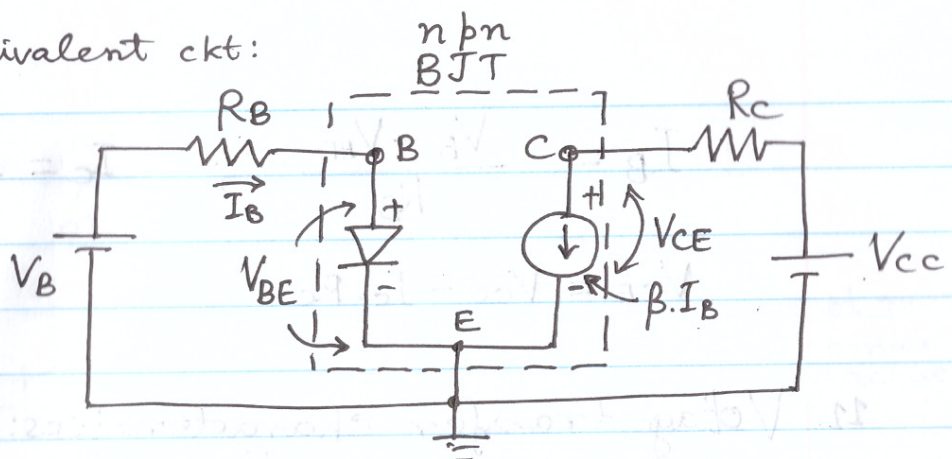 ivalent ckt:
npn
BJT
RB
RC
B
C
IB
+
+
VCE
VB
VBE
VCC
-
-
β.IB
E